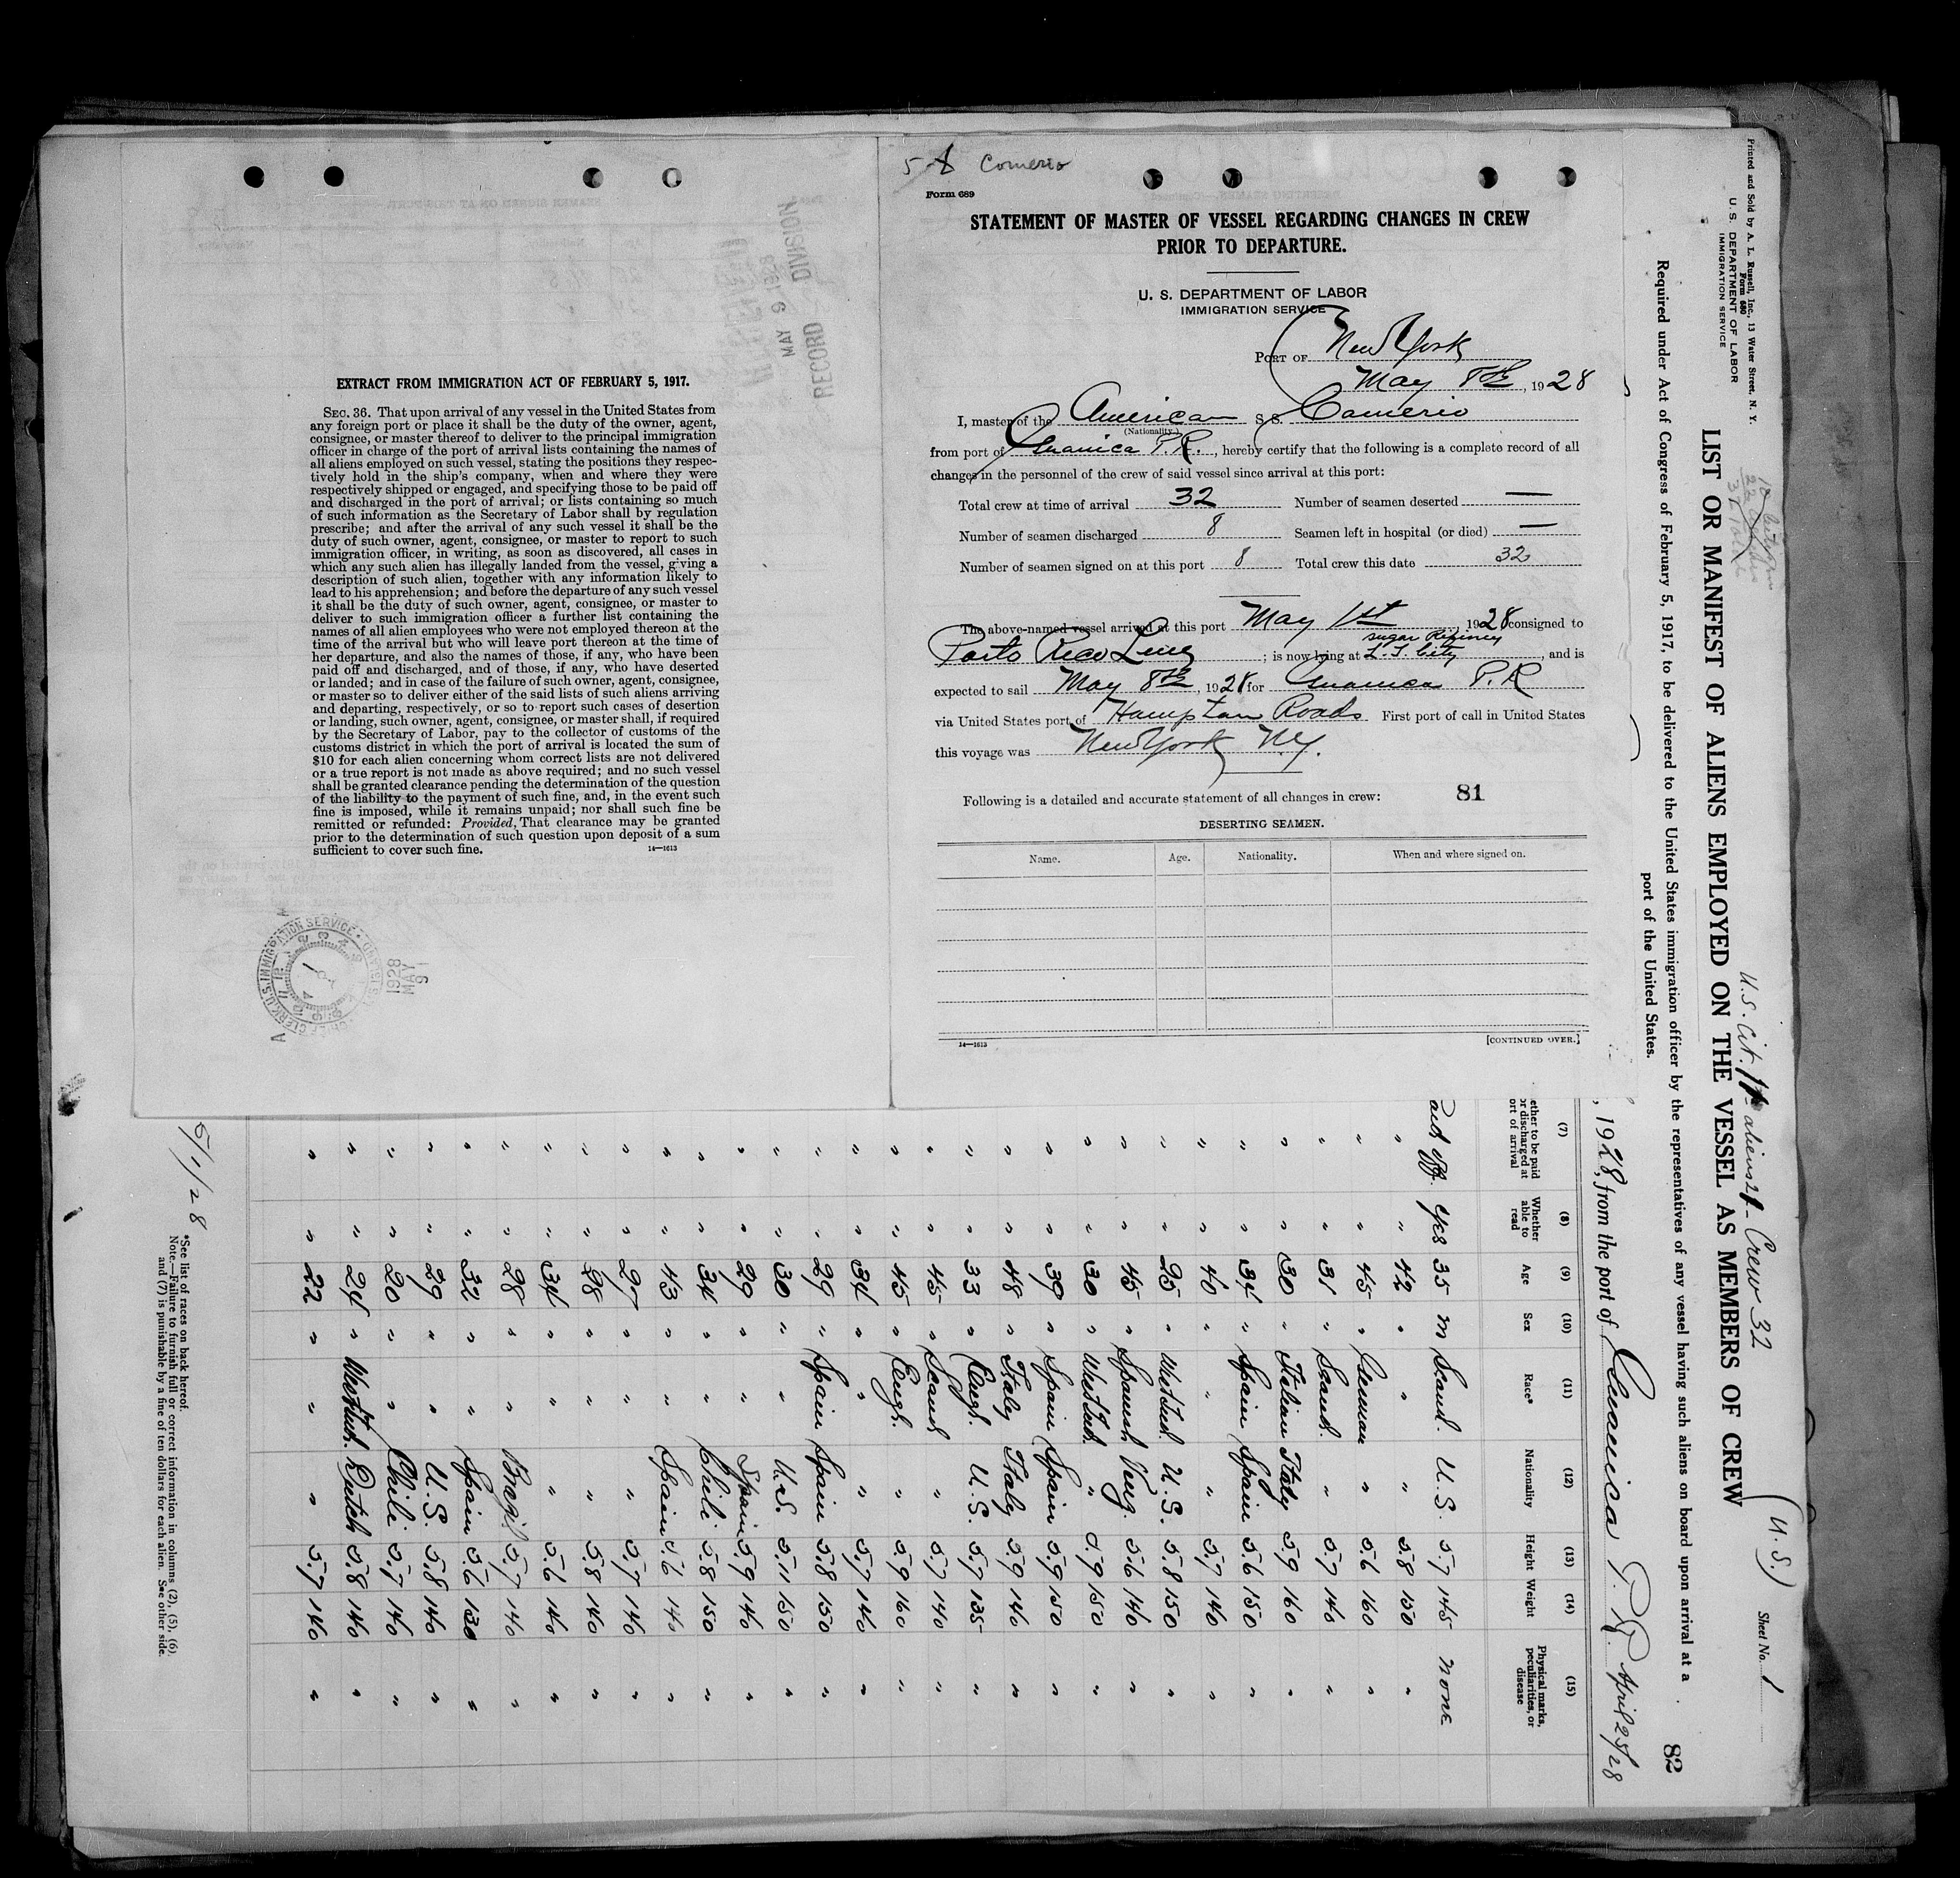 5-8 Comerio
Form 689
STATEMENT OF MASTER OF VESSEL REGARDING CHANGES IN CREW
PRIOR TO DEPARTURE.
U. S. DEPARTMENT OF LABOR
IMMIGRATION SERVICE
PORT OF New York
May 8th, 1928
I, master of the American S.S. Comerio
(Nationality.)
from port of Guanica P.R., hereby certify that the following is a complete record of all
changes in the personnel of the crew of said vessel since arrival at this port:
Total crew at time of arrival 32 Number of seamen deserted —
Number of seamen discharged 8 Seamen left in hospital (or died) —
Number of seamen signed on at this port 8 Total crew this date 32
The above-named vessel arrived at this port May 1st, 1928 consigned to
Porto Rico Line; is now lying at Sugar Refinery L.I. City, and is
expected to sail May 8th, 1928 for Guanica P.R
via United States port of Hampton Roads First port of call in United States
this voyage was New York N.Y.
Following is a detailed and accurate statement of all changes in crew: 81
DESERTING SEAMEN.
Name. Age. Nationality. When and where signed on.
14—1613 [CONTINUED OVER.]
RECORD DIVISION
MAY 9 1928
EXTRACT FROM IMMIGRATION ACT OF FEBRUARY 5, 1917.
SEC. 36. That upon arrival of any vessel in the United States from
any foreign port or place it shall be the duty of the owner, agent,
consignee, or master thereof to deliver to the principal immigration
officer in charge of the port of arrival lists containing the names of
all aliens employed on such vessel, stating the positions they respec-
tively hold in the ship's company, when and where they were
respectively shipped or engaged, and specifying those to be paid off
and discharged in the port of arrival; or lists containing so much
of such information as the Secretary of Labor shall by regulation
prescribe; and after the arrival of any such vessel it shall be the
duty of such owner, agent, consignee, or master to report to such
immigration officer, in writing, as soon as discovered, all cases in
which any such alien has illegally landed from the vessel, giving a
description of such alien, together with any information likely to
lead to his apprehension; and before the departure of any such vessel
it shall be the duty of such owner, agent, consignee, or master to
deliver to such immigration officer a further list containing the
names of all alien employees who were not employed thereon at the
time of the arrival but who will leave port thereon at the time of
her departure, and also the names of those, if any, who have been
paid off and discharged, and of those, if any, who have deserted
or landed; and in case of the failure of such owner, agent, consignee,
or master so to deliver either of the said lists of such aliens arriving
and departing, respectively, or so to report such cases of desertion
or landing, such owner, agent, consignee, or master shall, if required
by the Secretary of Labor, pay to the collector of customs of the
customs district in which the port of arrival is located the sum of
$10 for each alien concerning whom correct lists are not delivered
or a true report is not made as above required; and no such vessel
shall be granted clearance pending the determination of the question
of the liability to the payment of such fine, and, in the event such
fine is imposed, while it remains unpaid; nor shall such fine be
remitted or refunded: Provided, That clearance may be granted
prior to the determination of such question upon deposit of a sum
sufficient to cover such fine. 14—1613
CHIEF CLERK U.S. IMMIGRATION SERVICE
1928 MAY 9
Printed and Sold by A. L. Russell, Inc., 13 Water Street, N. Y.
Form 680
U. S. DEPARTMENT OF LABOR
IMMIGRATION SERVICE
U.S. Cit. aliens Crew 32
(U.S.) Sheet No. 1
LIST OR MANIFEST OF ALIENS EMPLOYED ON THE VESSEL AS MEMBERS OF CREW
82
Required under Act of Congress of February 5, 1917, to be delivered to the United States immigration officer by the representatives of any vessel having such aliens on board upon arrival at a
port of the United States.
, 1928, from the port of Guanica P.R. April 25/28
(7) (8) (9) (10) (11) (12) (13) (14) (15)
Whether able to read Age Sex Race* Nationality Height Weight Physical marks, peculiarities, or disease
Paid off. Yes 35 M Scand. U.S. 5.7 145 none
" " 42 " " " 5.8 150 "
" " 45 " German " 5.6 160 "
" " 31 " Scand. " 5.7 140 "
" " 30 " Italian Italy 5.9 160 "
" " 34 " Spain Spain 5.6 150 "
" " 40 " " " 5.7 140 "
" " 25 " West Ind. U.S. 5.8 150 "
" " 45 " Spanish Venz. 5.6 140 "
" " 30 " West Ind. " 5.9 150 "
" " 39 " Spain Spain 5.9 150 "
" " 48 " Italy Italy 5.9 140 "
" " 33 " Engl. U.S. 5.7 135 "
" " 45 " Scand " 5.7 140 "
" " 45 " Engl. " 5.9 160 "
" " 34 " " " 5.7 140 "
" " 29 " Spain Spain 5.8 150 "
" " 30 " " U.S. 5.11 150 "
" " 29 " " Spain 5.9 140 "
" " 34 " " Chili 5.8 150 "
" " 43 " " Spain 5.6 140 "
" " 27 " " " 5.7 140 "
" " 28 " " " 5.8 140 "
" " 34 " " " 5.6 140 "
" " 28 " " Brazil 5.7 140 "
" " 32 " " Spain 5.6 130 "
" " 29 " " U.S. 5.8 140 "
" " 20 " " Chili 5.7 140 "
" " 24 " West Ind. Dutch 5.8 140 "
" " 22 " " " 5.7 140 "
5/1/28
*See list of races on back hereof.
Note.—Failure to furnish full or correct information in columns (2), (5), (6),
and (7) is punishable by a fine of ten dollars for each alien. See other side.